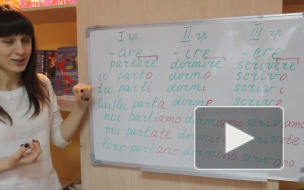 I гр. II гр. III гр.
-are -ire -ere
parlare dormire scrivere
io parlo dormo scrivo
tu parli dormi scrivi
parla dorme
noi parliamo dormiamo
voi parlate dormite
loro parlano dormono